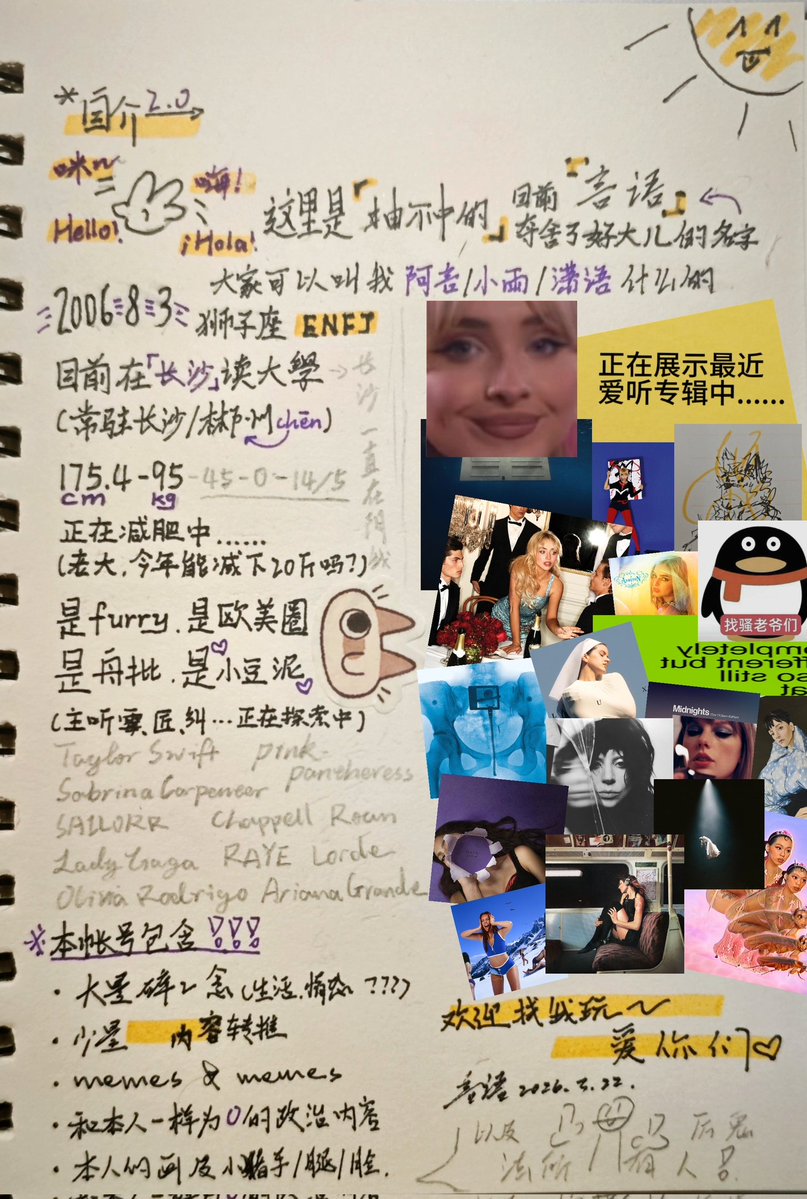 *国介2.0
咪~
嗨!
Hello!
¡Hola!
这里是「抽不中的」
目前『言语』
夺舍了好大儿的名字
大家可以叫我 阿言/小雨/潇语 什么的
2006=8=3
狮子座 ENFJ
目前在「长沙」读大學
(常驻长沙/郴州chēn)
长沙一直在阴战
175.4-95-45-0-14/5
cm kg
正在减肥中……
(老大,今年能减下20斤吗?)
是furry.是欧美圈
是舟批.是小豆泥
(主听霉.匠.纠…正在探索中)
Taylor Swift pink-
pantheress
Sabrina Carpenter
SAILORR Chappell Roan
Lady Gaga RAYE Lorde
Olivia Rodrigo Ariana Grande
*本帐号包含!!!
· 大量碎碎念(生活.情感????)
· 少量 内容转推
· memes & memes
· 和本人一样为0的政治内容
· 本人的画及小猪手/腿/脸.
正在展示最近
爱听专辑中……
找骚老爷们
completely
different but
also still
Midnights
欢迎找我玩~
爱你们♡
言语2026.3.22.
以及